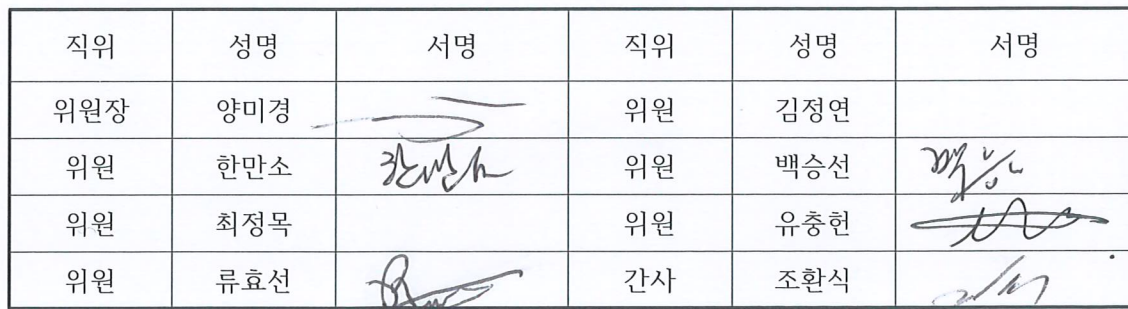 직위 성명 서명 직위 성명 서명
위원장 양미경 위원 김정연
위원 한만소 한만소 위원 백승선
위원 최정목 위원 유충헌
위원 류효선 간사 조환식